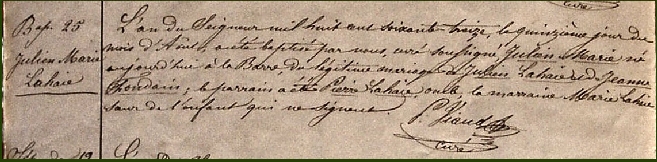 Curé
Bap. 25
Julien Marie
Lahaie
L'an du Seigneur mil huit cent soixante treize, le quinzième jour du
mois d'Avril, a été baptisé par nous, curé soussigné Julien Marie né
aujourd'hui à la Barre, du légitime mariage de Julien Lahaie & de Jeanne
le parrain a été Pierre Lahaie, oncle, la marraine Marie Lahaie
sœur de l'enfant qui ne signent.
P. Viaud
Curé